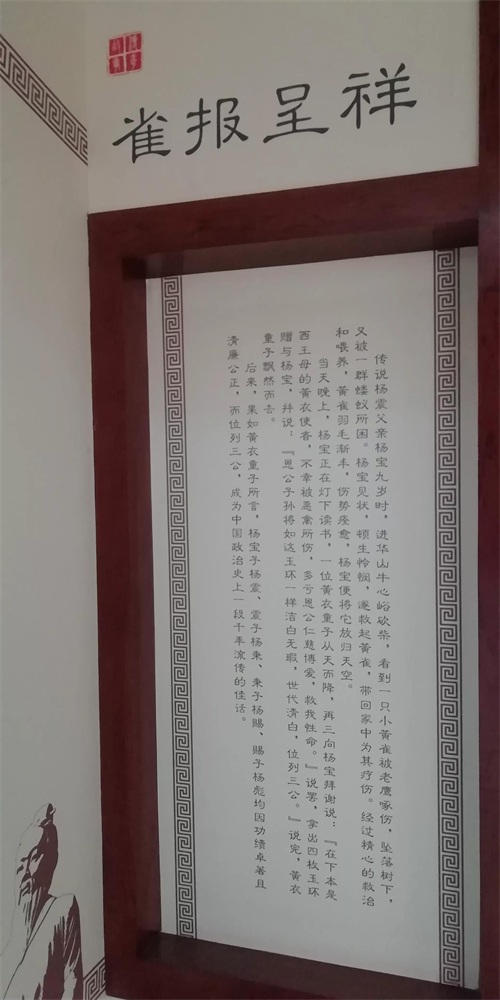 雀报呈祥
传说杨震父亲杨宝九岁时，进华山牛心峪砍柴，看到一只小黄雀被老鹰啄伤，坠落树下，
又被一群蝼蚁所困。杨宝见状，顿生怜悯，遂救起黄雀，带回家中为其疗伤。经过精心的救治
和喂养，黄雀羽毛渐丰，伤势痊愈，杨宝便将它放归天空。
当天晚上，杨宝正在灯下读书，一位黄衣童子从天而降，再三向杨宝拜谢说：『在下本是
西王母的黄衣使者，不幸被恶禽所伤，多亏恩公仁慈博爱，救我性命。』说罢，拿出四枚玉环
赠与杨宝，并说：『恩公子孙将如这玉环一样洁白无瑕，世代清白，位列三公。』说完，黄衣
童子飘然而去。
后来，果如黄衣童子所言，杨宝子杨震、震子杨秉、秉子杨赐、赐子杨彪均因功绩卓著且
清廉公正，而位列三公，成为中国政治史上一段千年流传的佳话。